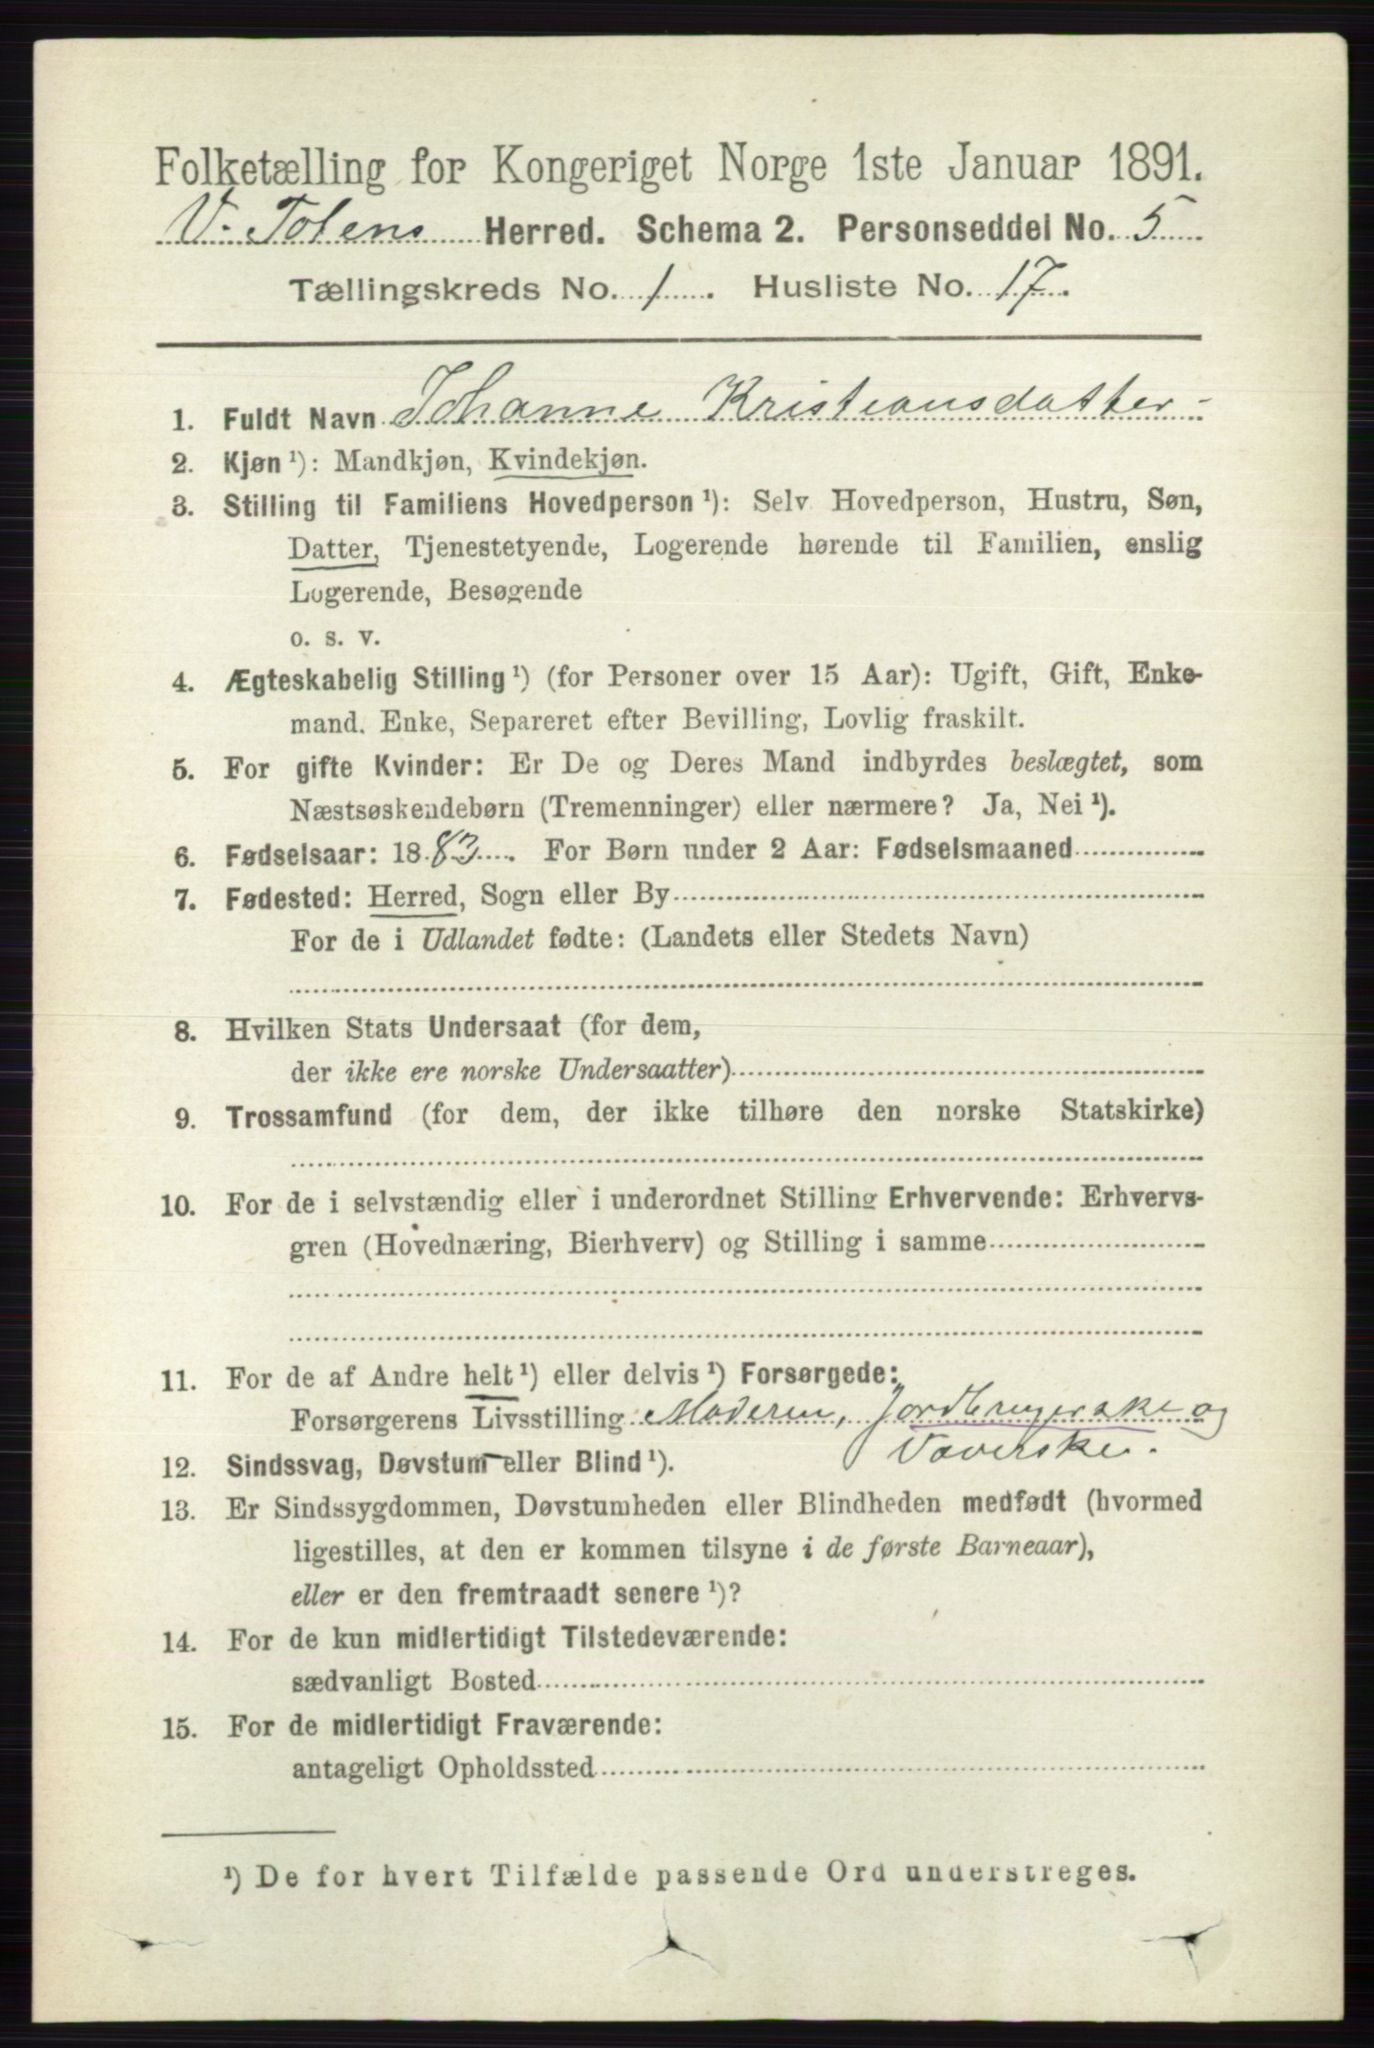 Folketælling for Kongeriget Norge 1ste Januar 1891.
V. Totens Herred. Schema 2. Personseddel No. 5
Tællingskreds No. 1. Husliste No. 17.
1. Fuldt Navn Johanne Kristiansdatter -
2. Kjøn ¹): Mandkjøn, Kvindekjøn.
3. Stilling til Familiens Hovedperson ¹): Selv Hovedperson, Hustru, Søn,
Datter, Tjenestetyende, Logerende hørende til Familien, enslig
Logerende, Besøgende
o. s. v.
4. Ægteskabelig Stilling ¹) (for Personer over 15 Aar): Ugift, Gift, Enke-
mand, Enke, Separeret efter Bevilling, Lovlig fraskilt.
5. For gifte Kvinder: Er De og Deres Mand indbyrdes beslægtet, som
Næstsøskendebørn (Tremenninger) eller nærmere? Ja, Nei ¹).
6. Fødselsaar: 1883. For Børn under 2 Aar: Fødselsmaaned
7. Fødested: Herred, Sogn eller By
For de i Udlandet fødte: (Landets eller Stedets Navn)
8. Hvilken Stats Undersaat (for dem,
der ikke ere norske Undersaatter)
9. Trossamfund (for dem, der ikke tilhøre den norske Statskirke)
10. For de i selvstændig eller i underordnet Stilling Erhvervende: Erhvervs-
gren (Hovednæring, Bierhverv) og Stilling i samme
11. For de af Andre helt ¹) eller delvis ¹) Forsørgede:
Forsørgerens Livsstilling Moderen, Jordbrugerske og
Væverske.
12. Sindssvag, Døvstum eller Blind ¹).
13. Er Sindssygdommen, Døvstumheden eller Blindheden medfødt (hvormed
ligestilles, at den er kommen tilsyne i de første Barneaar),
eller er den fremtraadt senere ¹)?
14. For de kun midlertidigt Tilstedeværende:
sædvanligt Bosted
15. For de midlertidigt Fraværende:
antageligt Opholdssted
¹) De for hvert Tilfælde passende Ord understreges.